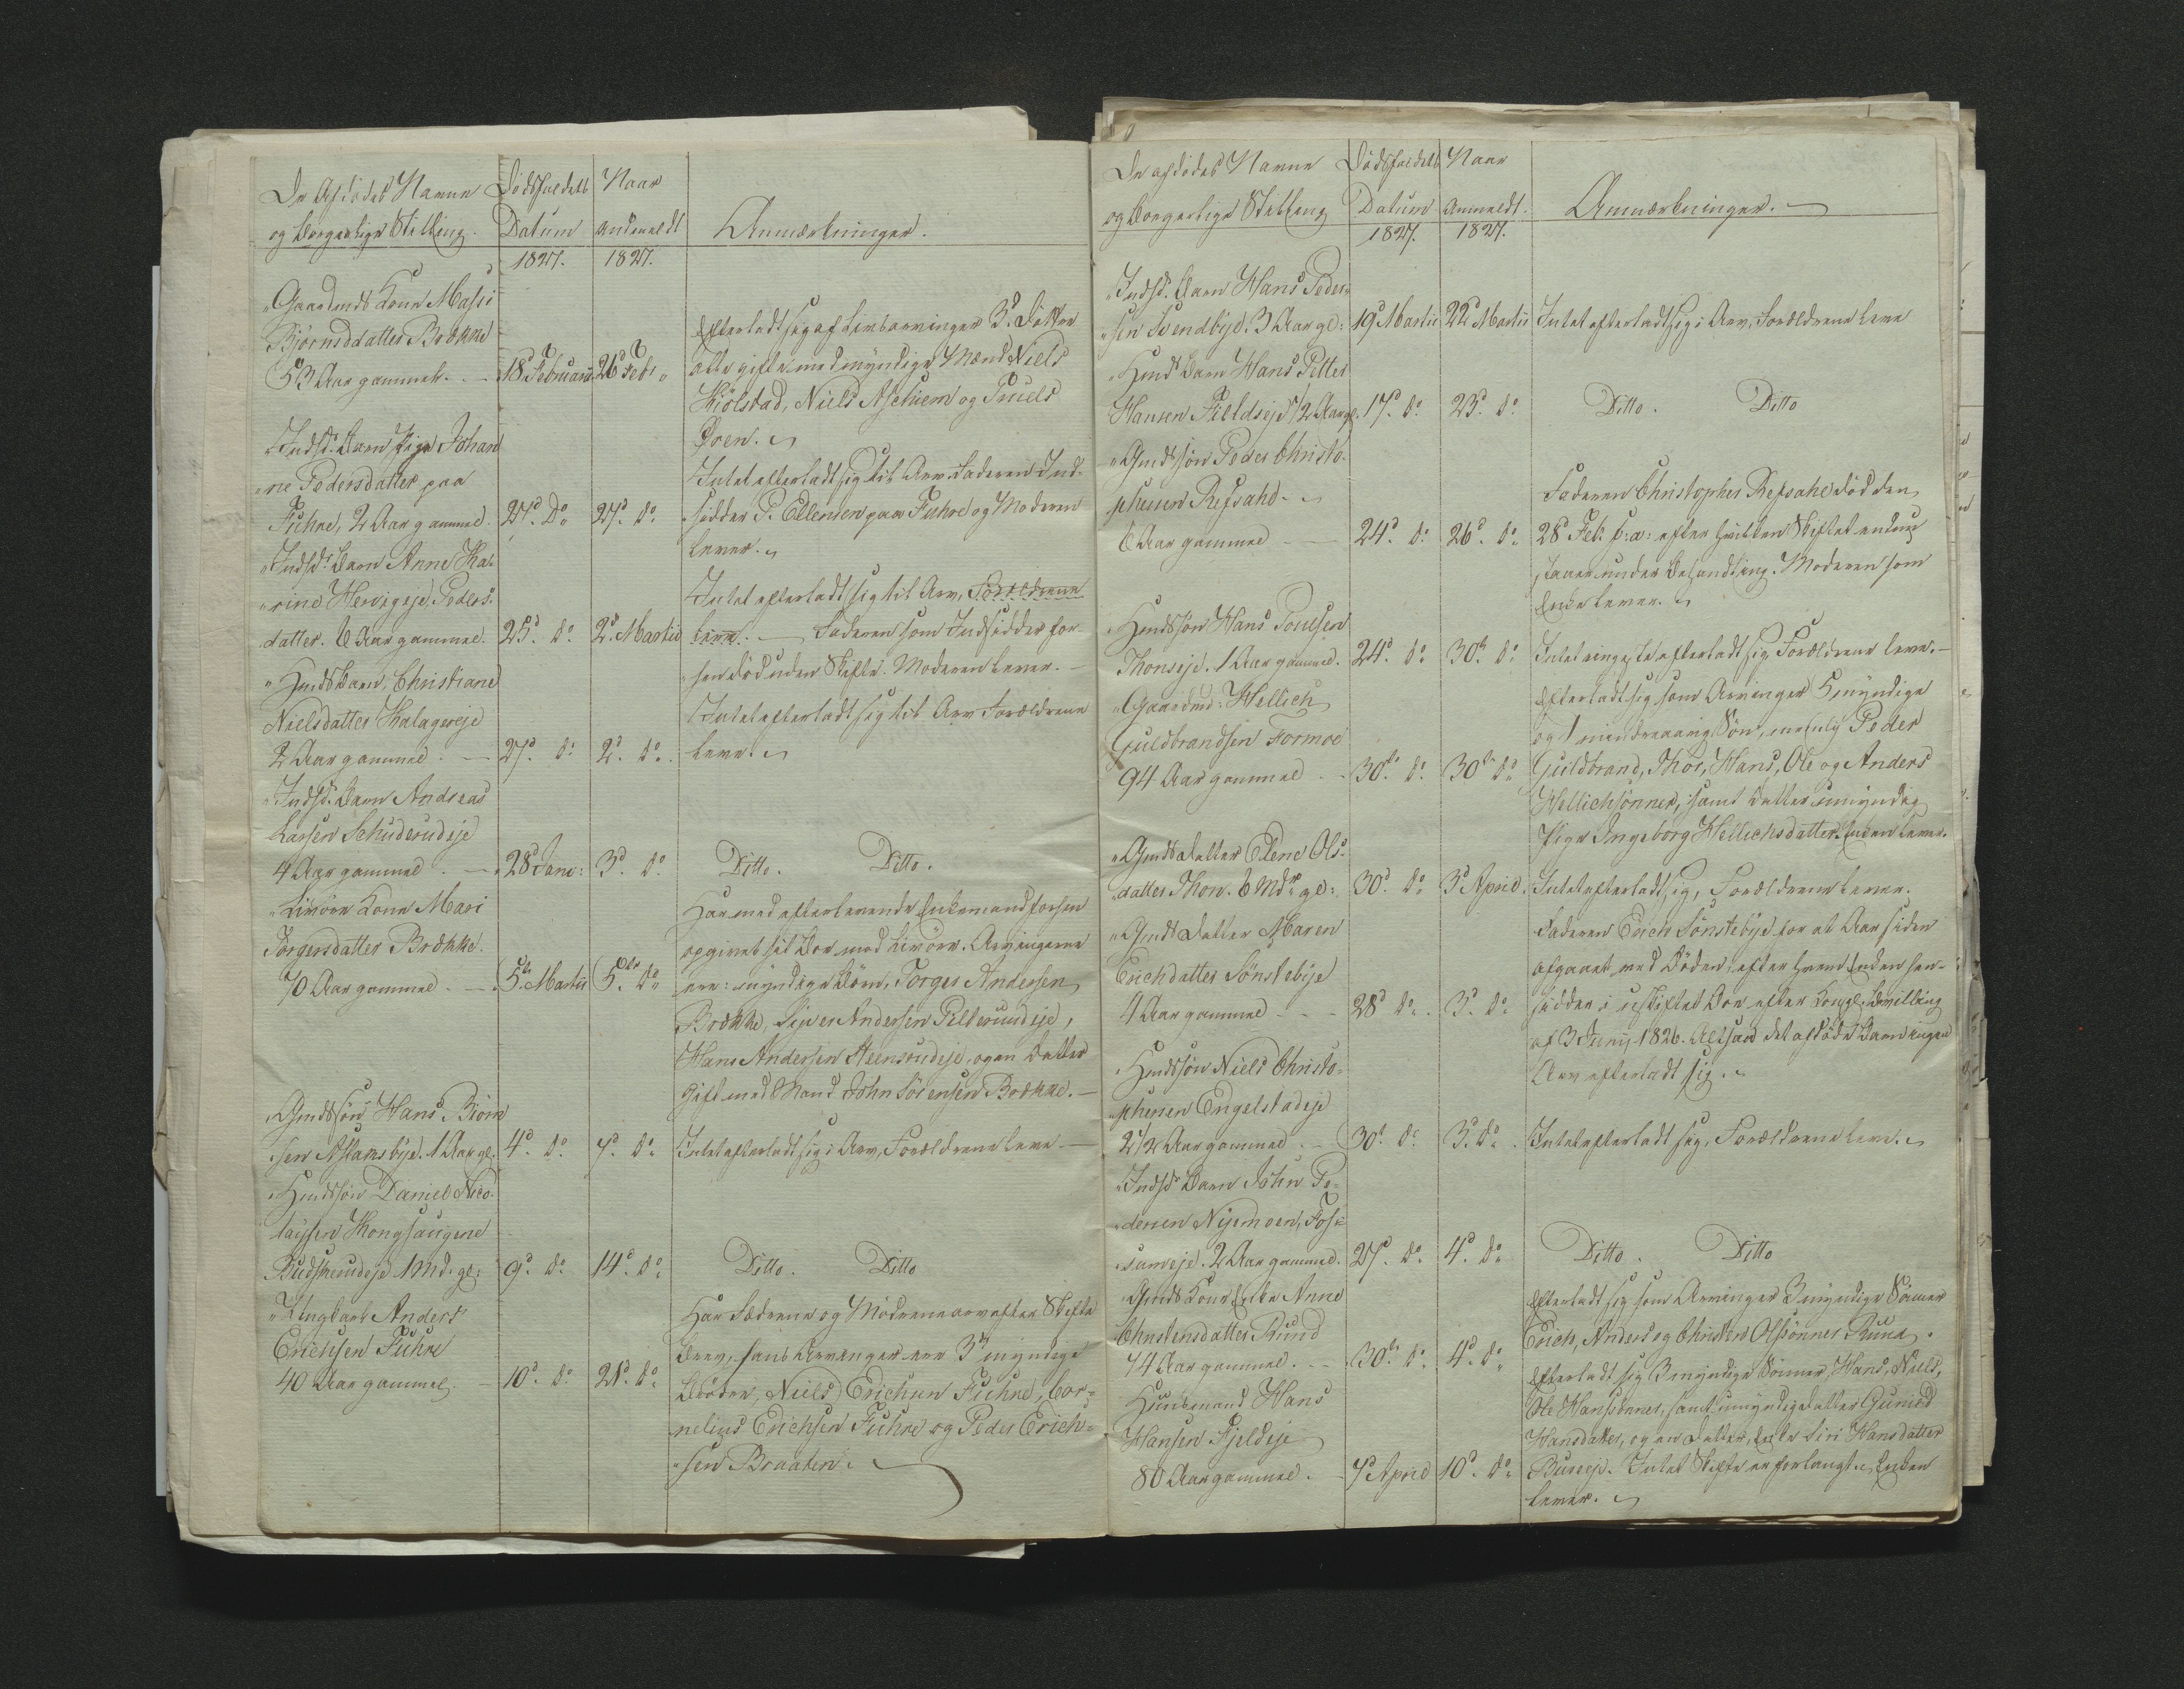 De Afdödes Navne
og borgerlige Stilling.
Dödsfaldets
Datum
1827.
Naar
anmeldt
1827.
Anmærkninger.
Gaardmds Kone Massi
Björnsdatter Brække
53 Aar gammel. 18d Februarii 26d Feb:
Efterladt sig af Livsarvinger 3de Døttre
alle gifte med myndige Mænd Niels
Hiölstad, Niels Aschiem og Truels
Ören.
Inds: Barn Pige Johan
ne Pedersdatter paa
Fuhre, 2 Aar gammel. 27d Do 27d do
Intet efterladt sig til Arv. Faderen Ind-
sidder P. Ellensen paa Fuhre og Moderen
lever.
Inds: Barn Anne Ka-
rine Hervigeje, Peders-
datter. 6 Aar gammel. 25d do 2d Martii
Intet efterladt sig til Arv, Forældrene
leve. Faderen som Indsidder for-
hen död uden Skifte. Moderen lever.
Hmds Barn, Christiane
Nielsdatter Kalagereje
2 Aar gammel. 27d do 2d do
Intet efterladt sig til Arv Forældrene
leve.
Inds: Barn Andreas
Larsen Schuderudeje
4 Aar gammel. 28d Janr: 3d do
Ditto. Ditto.
Livöre Kone Mari
Torgersdatter Brække.
70 Aar gammel. 5te Martii 5te do
Har med efterlevende Enkemand forhen
opgivet sit Boe mod Livöre. Arvingerne
ere: myndige Börn, Torger Andersen
Brække, Siver Andersen Pelterudeje,
Hans Andersen Steensrudeje, og en Datter
Gift med Mand John Sörensen Brække.
Gmds sön Hans Biörn
sen Aslaksbye. 1 Aar gl. 4d do 7d do
Intet efterladt sig i Arv, Forældrene leve
Hmds sön Daniel Nico-
laysen Kongsaugene
Budskerudeje 1 Md. gl: 9d do 14d do
Ditto. Ditto
Ungkarl Anders
Erichsen Fuhre
40 Aar gammel 10d do 21d do
Har Fædrene og Mödrene arv efter Skifte
breve, hans Arvinger ere 3de myndige
Brödre, Niels Erichsen Fuhre, Cor-
nelius Erichsen Fuhre og Peder Erich-
sen Braaten.
De afdödes Navne
og borgerlige Stilling
Dödsfaldets
Datum
1827.
Naar
anmeldt.
1827.
Anmærkninger.
Inds: Barn Hans Peder-
sen Svendbye. 3 Aar gl: 19d Martii 22d Martii Intet efterladt sig i Arv, Forældrene leve
Hmds Barn Hans Petter
Hansen Fieldseje 1/2 Aar gl. 17d do 23d do
Ditto. Ditto
Gmds sön Peder Christo-
phersen Refsahl.
6 Aar gammel 24d do 26d do
Faderen Christopher Refsahl död den
28d Feb: h: a: efter hvilken Skiftet endnu
staaer under Behandling. Moderen som
Enke lever.
Hmds sön Hans Poulsen
Thonseje. 1 Aar gammel. 24d do 30te do
Intet ringeste efterladt sig, Forældrene leve.
Gaardmd: Hellich
Guldbrandsen Formoe
94 Aar gammel 30te do 30te do
Efterladt sig som Arvinger 5 myndige
og 1 mindreaarig Sön, nemlig Peder
Guldbrand, Thor, Hans, Ole og Anders
Hellichsönner, samt Datter umyndig
Pige Ingeborg Hellichsdatter. Enken lever.
Gmds Datter Elene Ols-
datter Thon. 6 Mdr gl: 30d do 3d April. Intet efterladt sig, Forældrene lever.
Gmds Datter Maren
Erichdatter Sönstebye
4 Aar gammel 28d do. 3d do
Faderen Erich Sönstebye for et Aar siden
afgaaet ved Döden, efter hvem Enken hen-
sidder i uskiftet Boe efter Kongl. Bevilling
af 3 Junij 1826. Altsaa det afdöde Barn ingen
Arv efterladt sig.
Hmds sön Niels Christo-
phersen Engelstadeje
2 1/2 Aar gammel. 30te do 3d do Intet efterladt sig, Forældrene leve.
Inds: Barn John Pe-
dersen Nijemoen, Fos-
sumeje. 2 Aar gammel. 27d do. 4d do
Ditto. Ditto
Gmds Kone Enke Anne
Christensdatter Ruud
74 Aar gammel. 30te do 4d do
Efterladt sig som Arvinger 3 myndige Sönner
Erich, Anders og Christen Olssönner Ruud.
Huusmand Hans
Hansen Fjeldeje
80 Aar gammel. 7d April 10d do
Efterladt sig 3 myndige Sönner, Hans, Niels,
Ole Hanssönner, samt umyndig Datter Gunild
Hansdatter, og en Datter, Enke Siri Hansdatter
Bureeje. Intet Skifte er forlangt. Enken
lever.